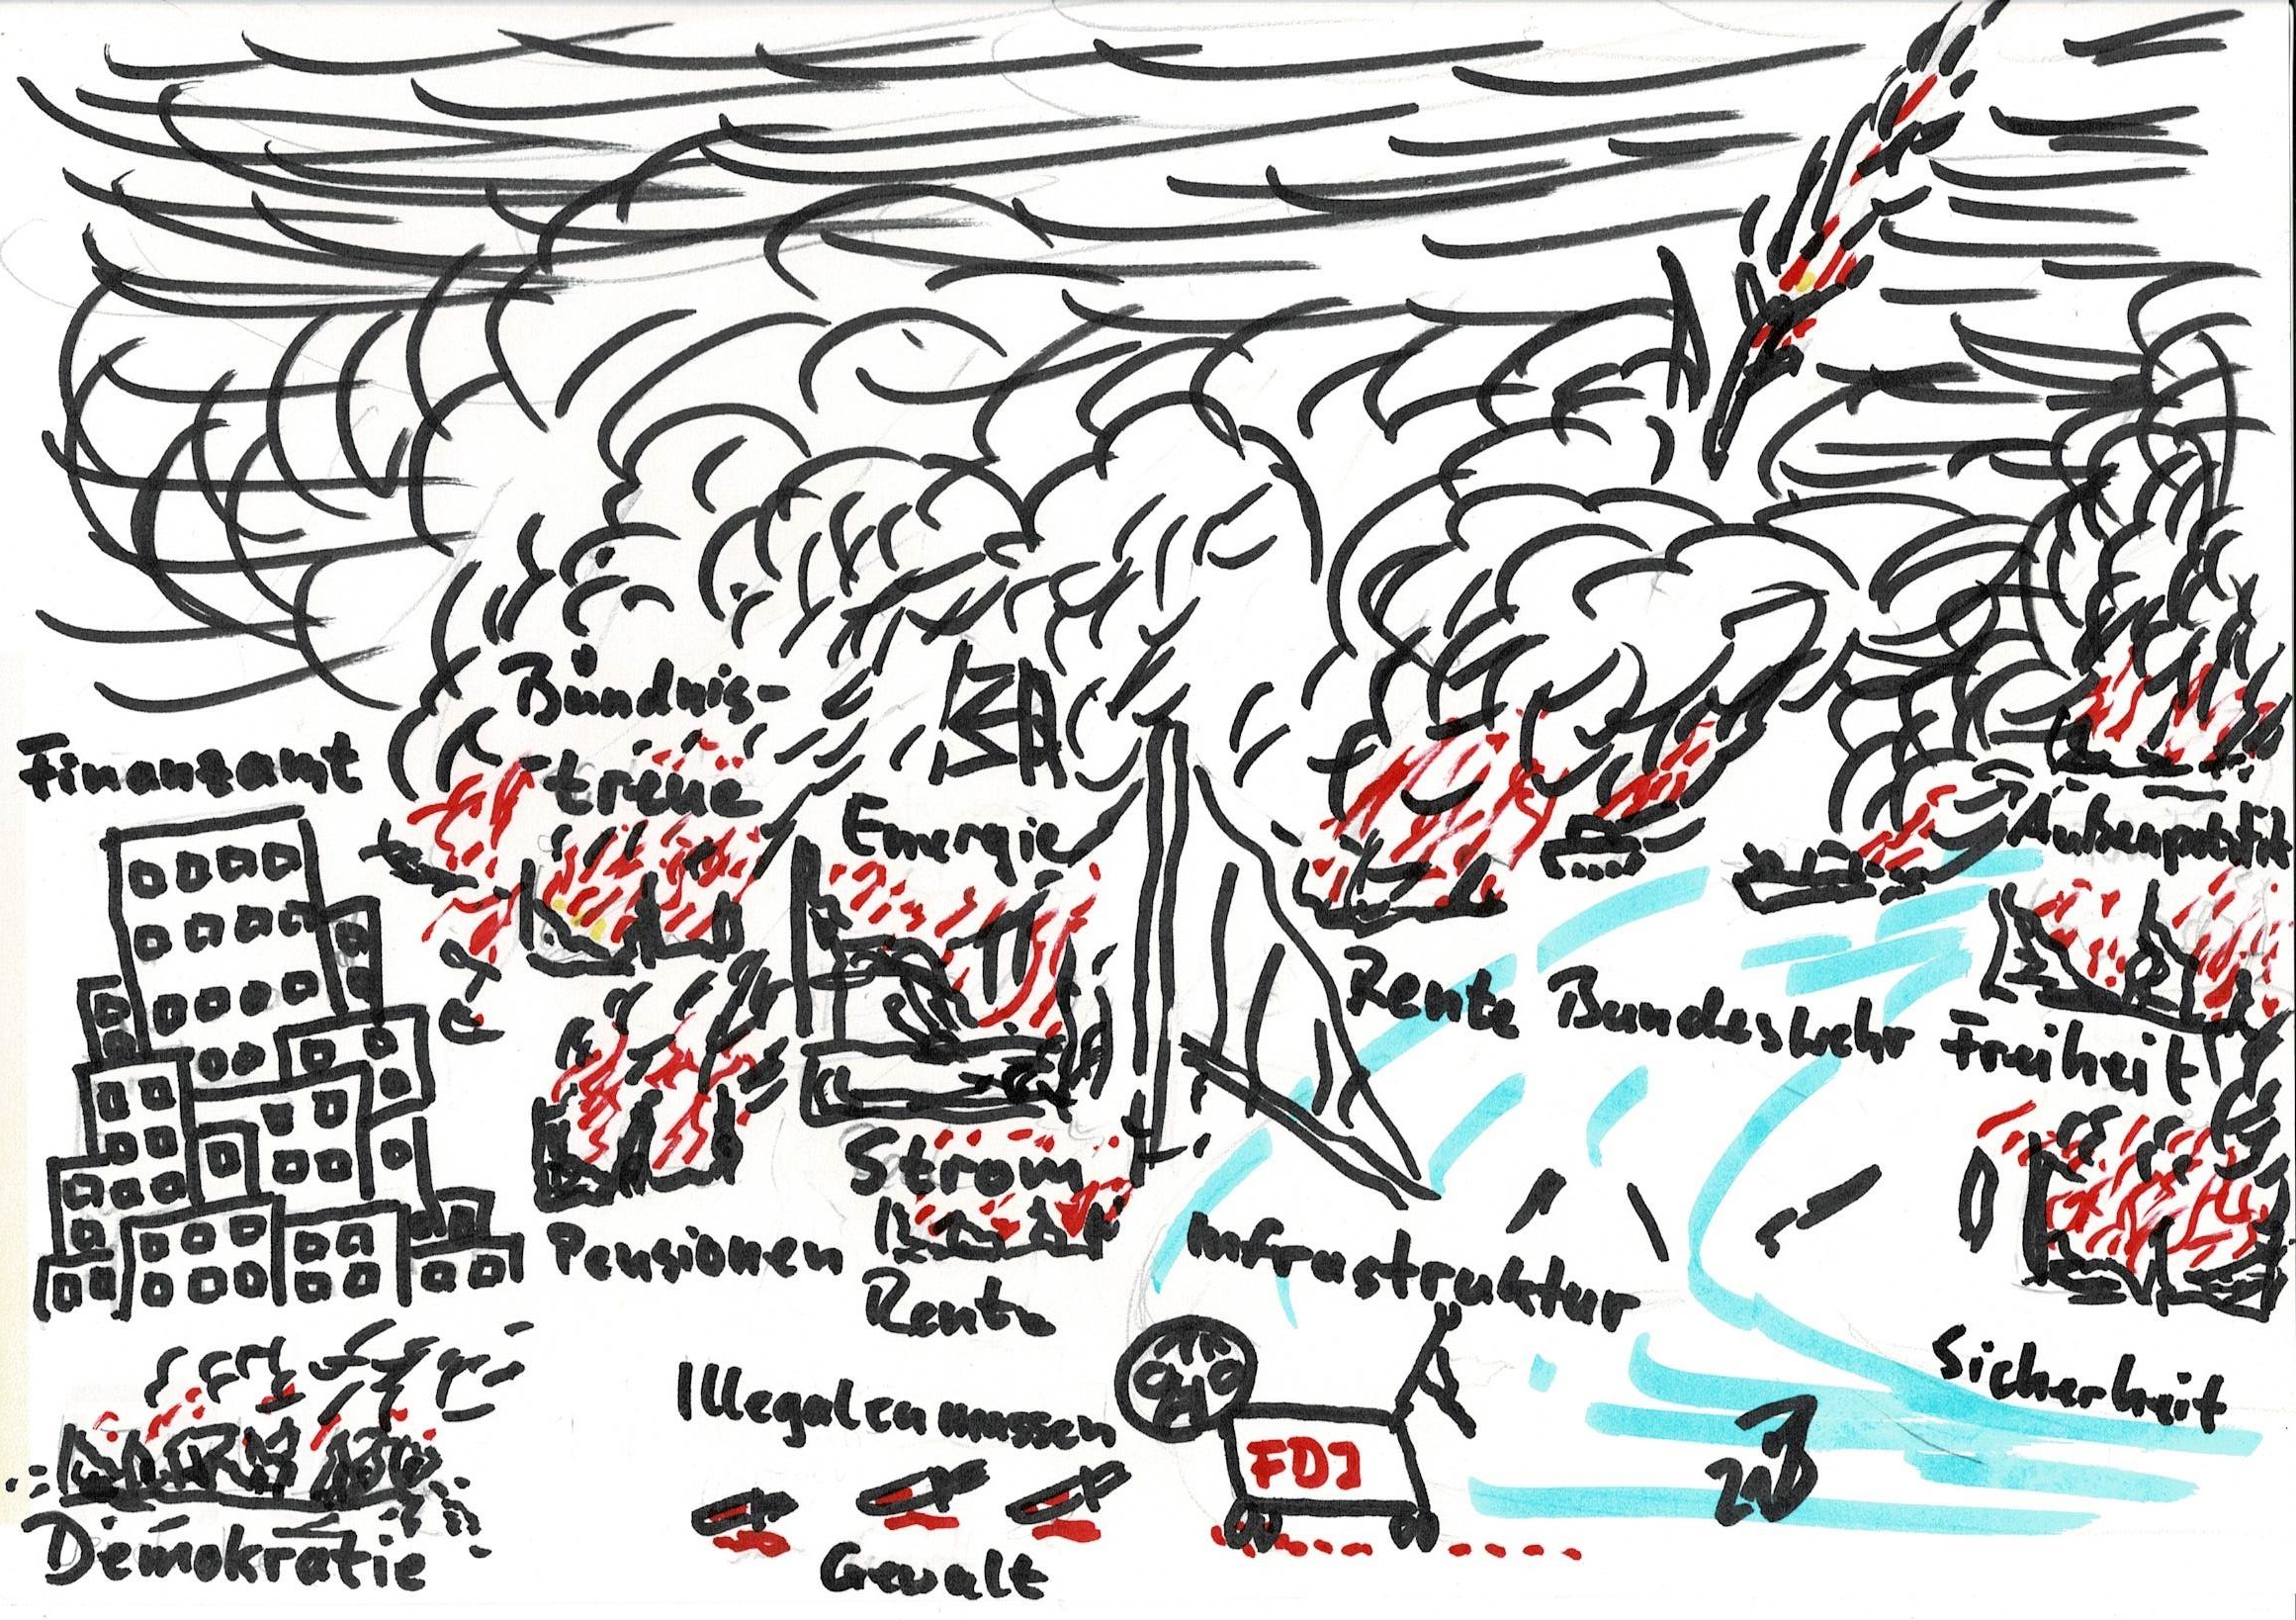 Bündnis-
treue
Finanzamt
Energie
Außenpolitik
Rente Bundeswehr Freiheit
Strom
Pensionen
Infrastruktur
Rente
Sicherheit
Illegalenmassen
FDJ
Gewalt
Demokratie